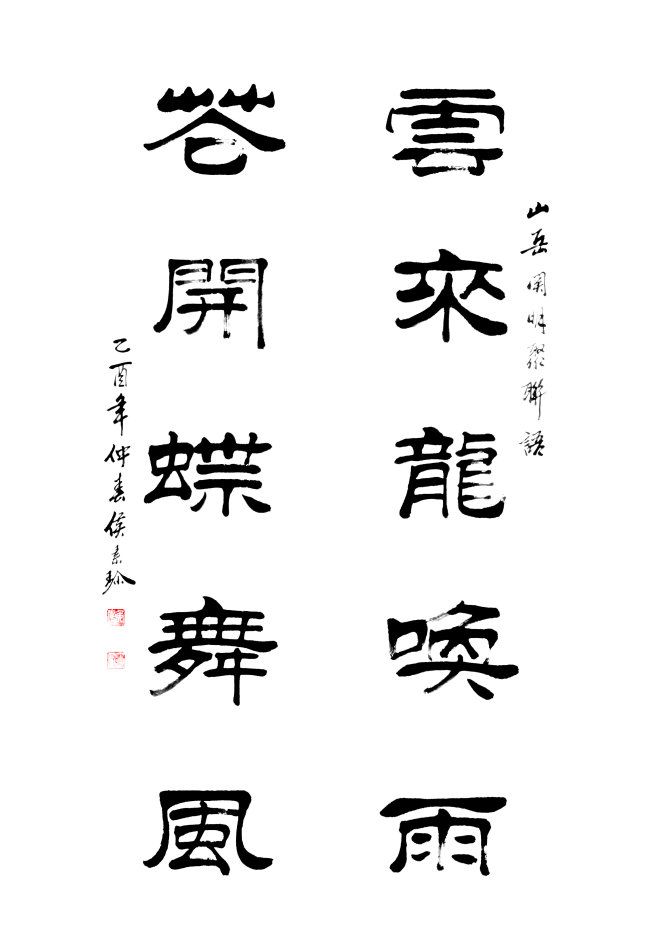 山岳開時聚聯語
雲來龍喚雨
花開蝶舞風
乙酉年仲春侯素珍